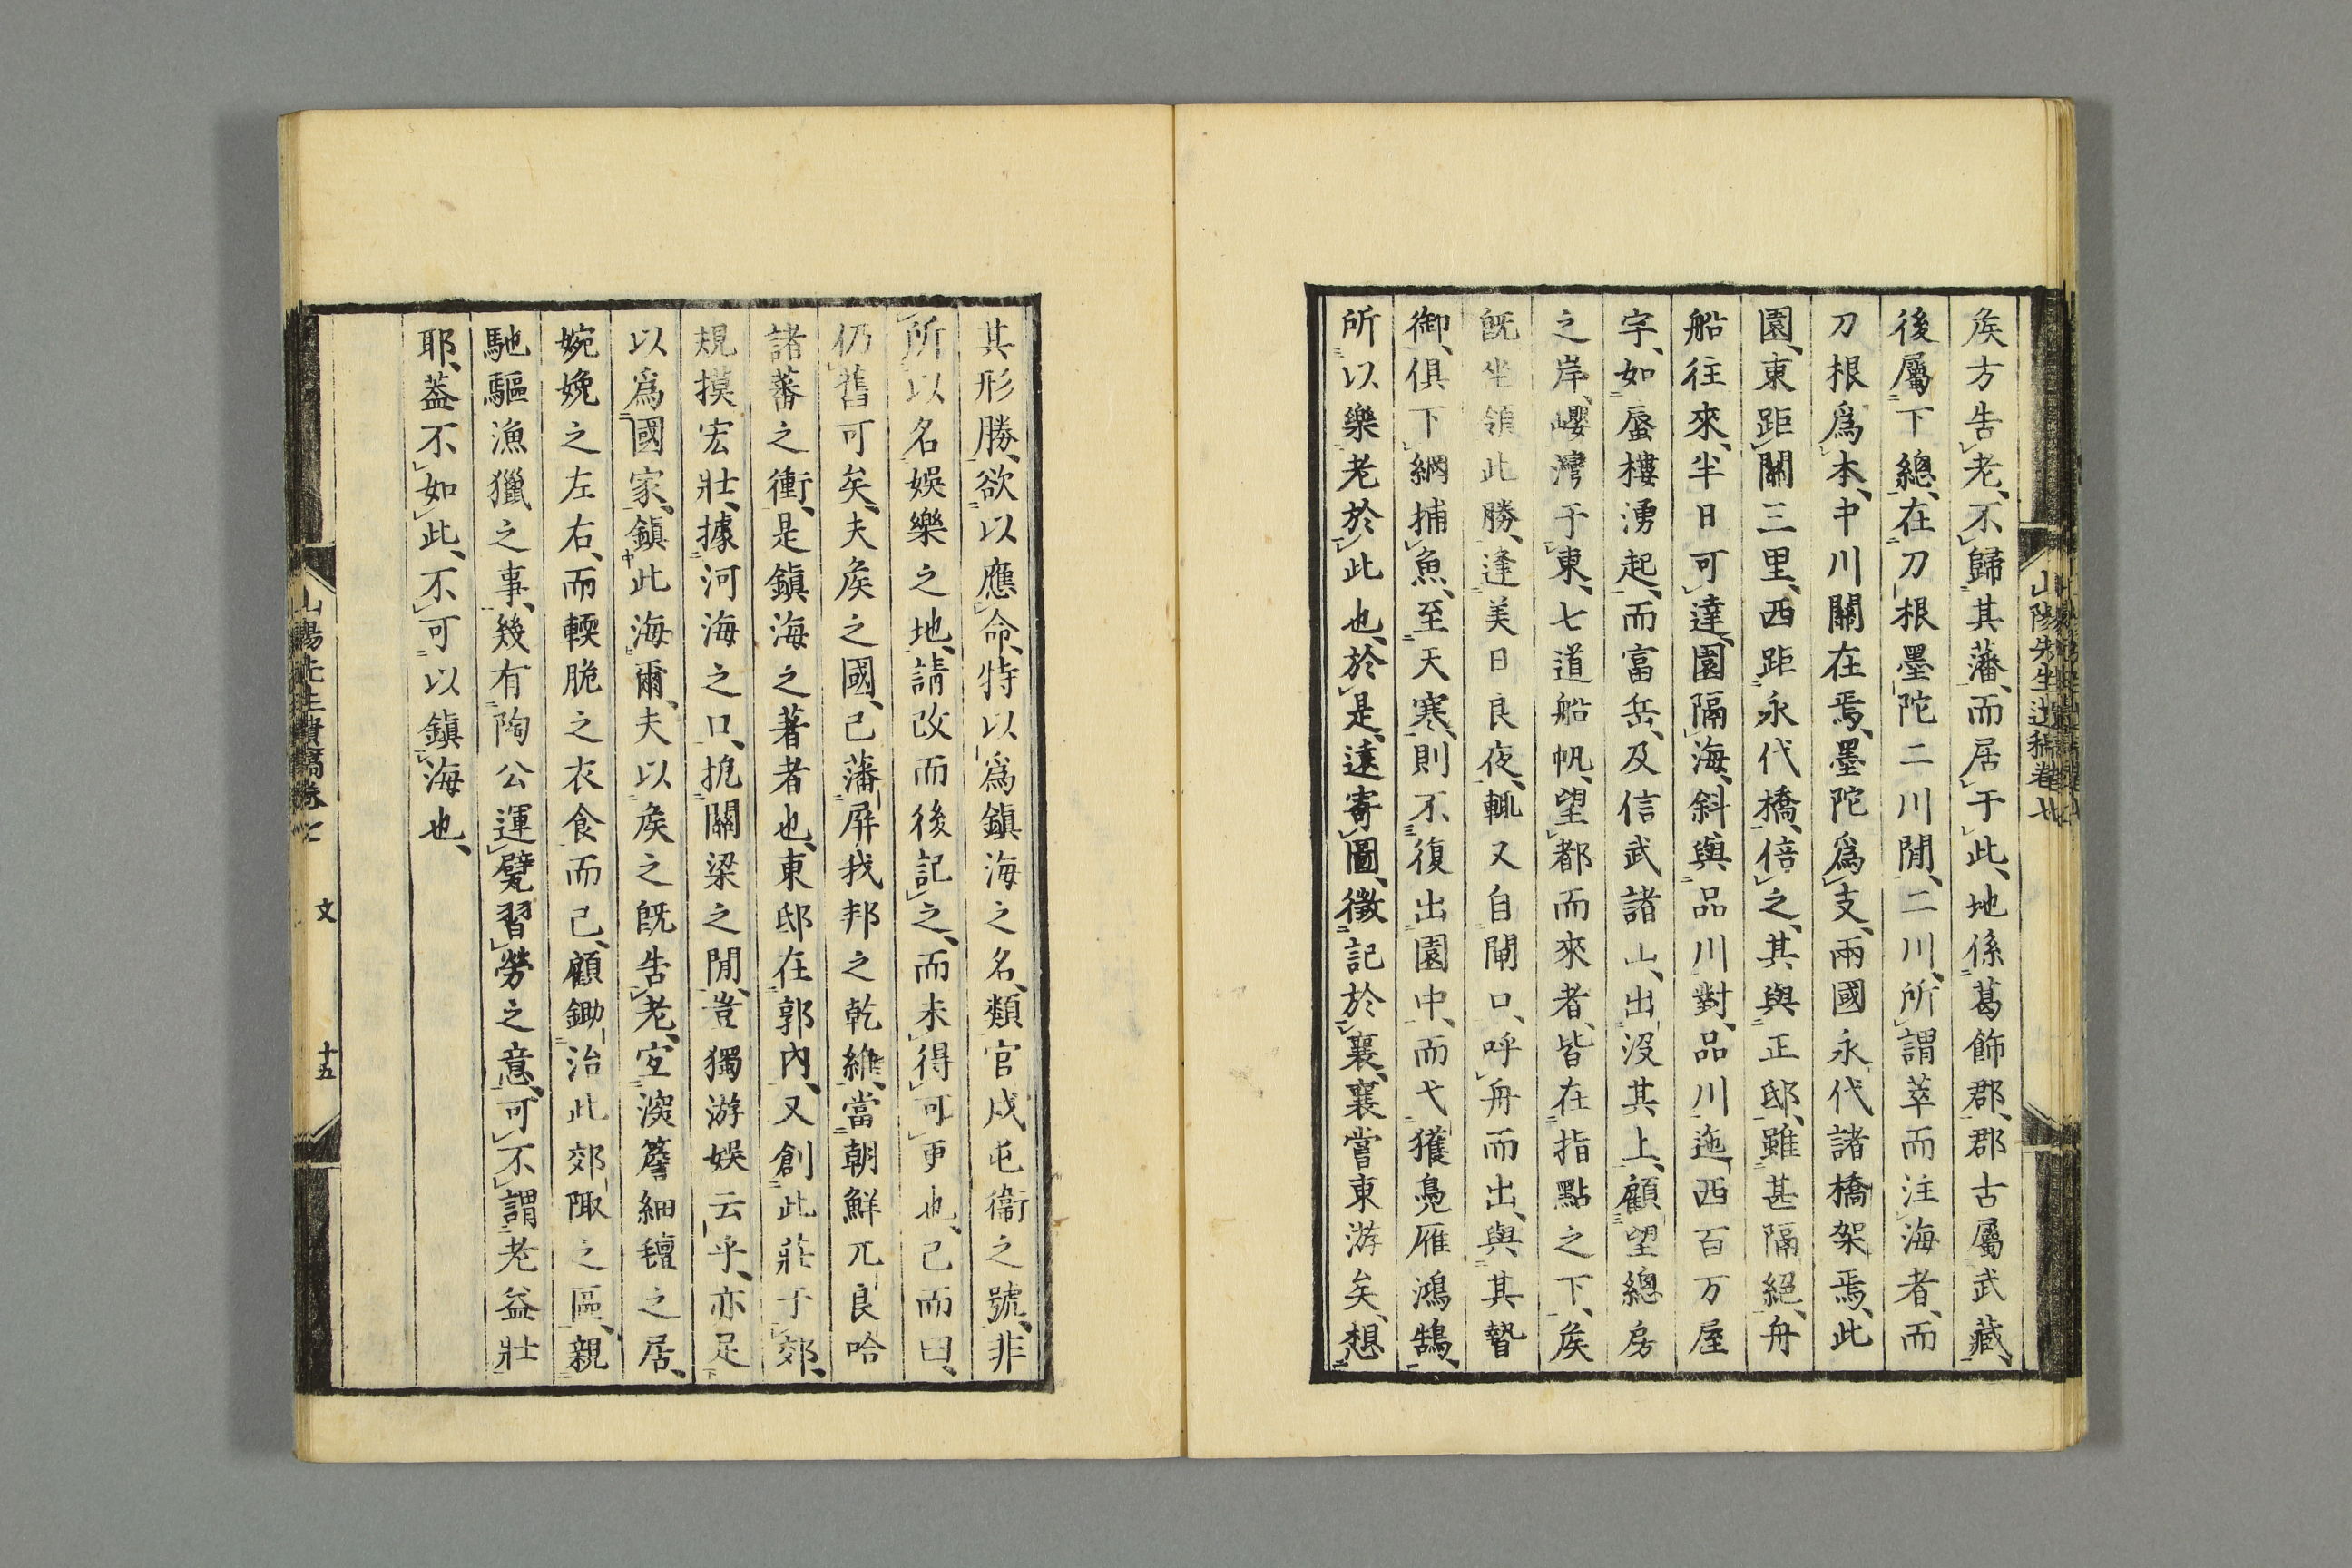 矦方告老、不歸其藩、而居于此、地係葛飾郡、郡古屬武藏、
後屬下總、在刀根墨陀二川閒、二川、所謂萃而注海者、而
刀根爲本、中川關在焉、墨陀爲支、兩國永代諸橋架焉、此
園、東距關三里、西距永代橋、倍之、其與正邸、雖甚隔絕、舟
船往來、半日可達、園隔海、斜與品川對、品川迤西百万屋
字、如蜃樓湧起、而富岳、及信武諸山、出沒其上、顧望總房
之岸、巊灣于東、七道船帆、望都而來者、皆在指點之下、矦
旣坐領此勝、逢美日良夜、輒又自閘口、呼舟而出、與其摯
御、俱下網捕魚、至天寒、則不復出園中、而弋獲鳧雁鴻鵠、
所以樂老於此也、於是、遠寄圖、徵記於襄、襄嘗東游矣、想
其形勝、欲以應命、特以爲鎭海之名、類官戍屯衞之號、非
所以名娛樂之地、請改而後記之、而未得可更也、已而曰、
仍舊可矣、夫矦之國、已藩屏我邦之乾維、當朝鮮兀良哈
諸蕃之衝、是鎭海之著者也、東邸在郭內、又創此莊于郊、
規摸宏壯、據河海之口、扼關梁之閒、豈獨游娛云乎、亦足
以爲國家、鎭此海爾、夫以矦之旣告老、宜深簷細氊之居、
婉娩之左右、而輭脆之衣食而已、顧鋤治此郊陬之區、親
馳驅漁獵之事、幾有陶公運甓習勞之意、可不謂老益壯
耶、蓋不如此、不可以鎭海也、
山陽先生遺稿卷七 文 十五